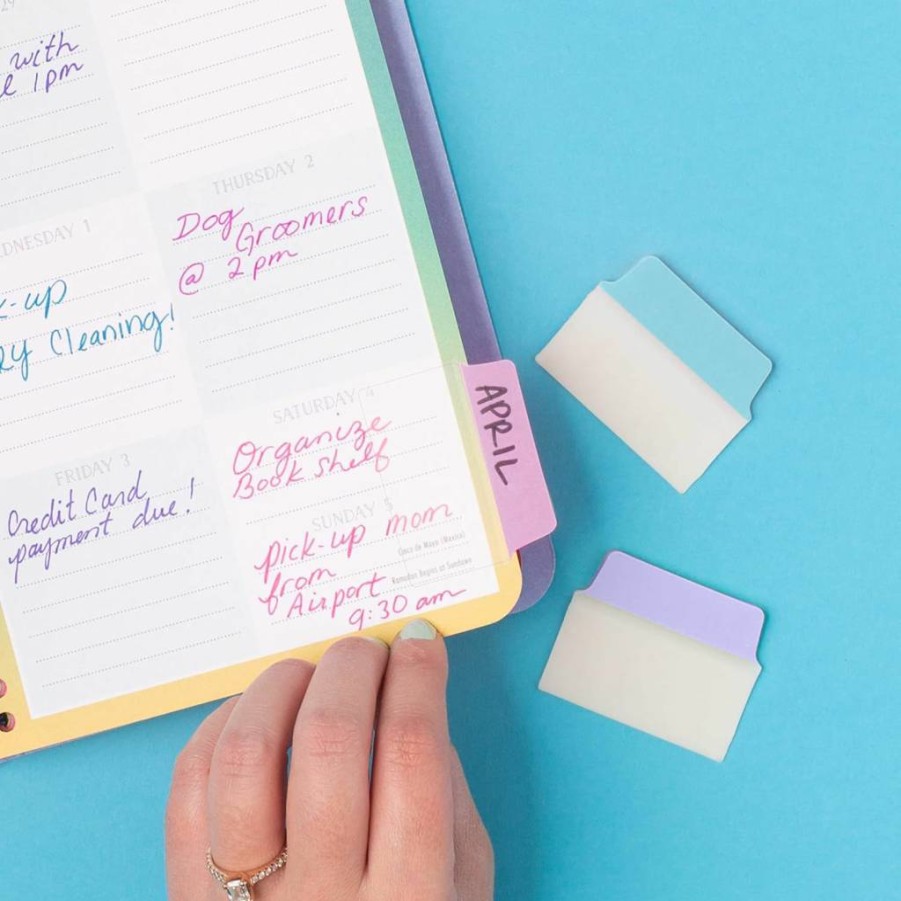 29
with
1pm
THURSDAY 2
Dog
Groomers
@ 2pm
WEDNESDAY 1
k-up
ry Cleaning!
APRIL
SATURDAY 4
Organize
Book shelf
FRIDAY 3
Credit Card
payment due!
SUNDAY 5
pick-up mom
from
Airport
9:30 am
Cinco de Mayo (Mexico)
Ramadan Begins at Sundown